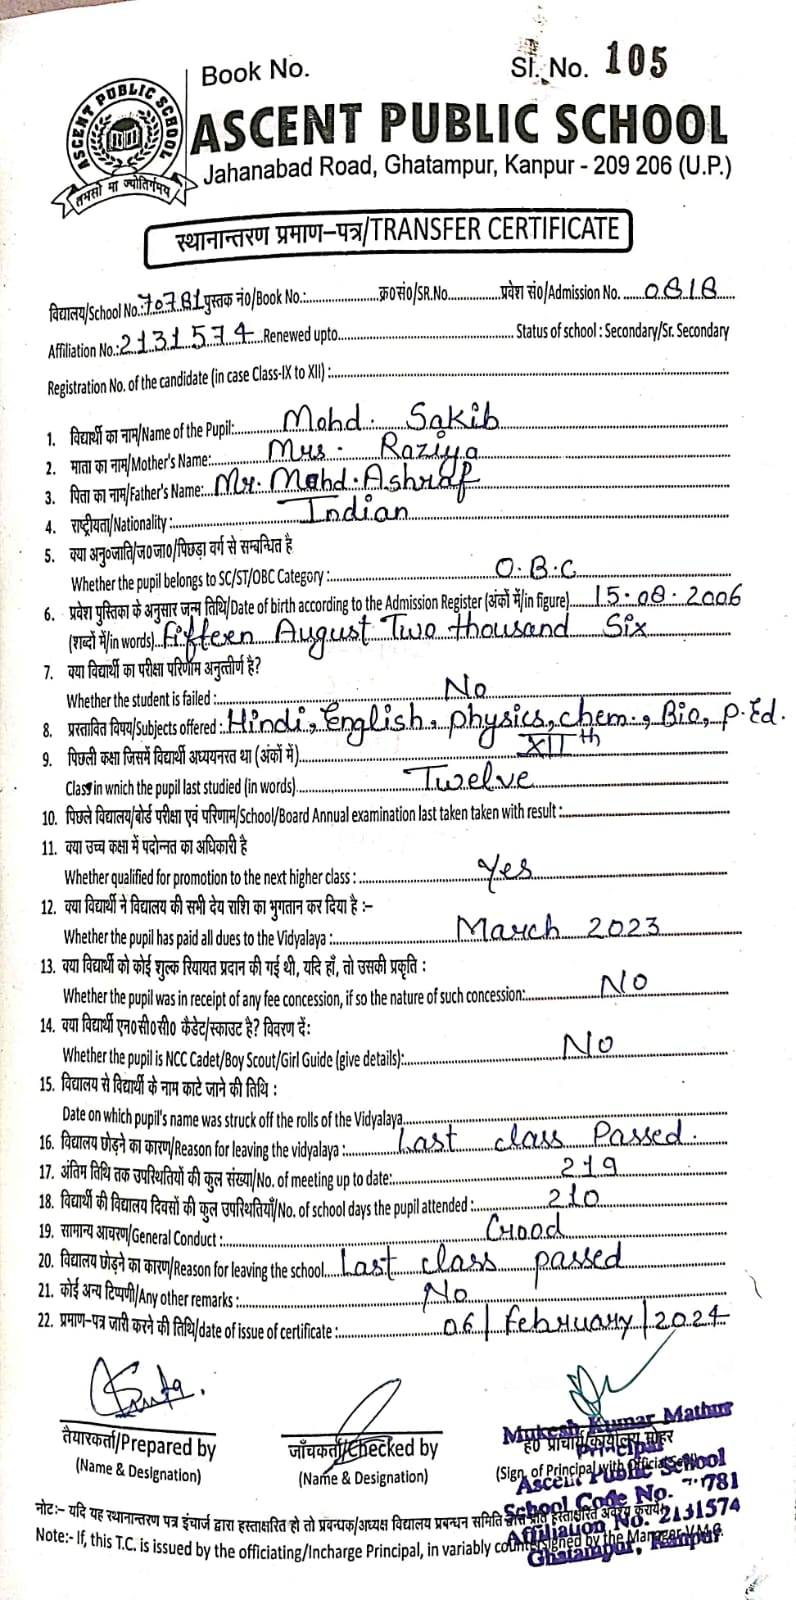 Book No.
Sl. No. 105
ASCENT PUBLIC SCHOOL
तमसो मा ज्योतिर्गमय
ASCENT PUBLIC SCHOOL
Jahanabad Road, Ghatampur, Kanpur - 209 206 (U.P.)
स्थानान्तरण प्रमाण-पत्र/TRANSFER CERTIFICATE
विद्यालय/School No.: 70781 पुस्तक नं०/Book No.: क्र०सं०/SR.No. प्रवेश सं०/Admission No. 0818
Affiliation No.: 2131574 Renewed upto Status of school : Secondary/Sr. Secondary
Registration No. of the candidate (in case Class-IX to XII) :
1. विद्यार्थी का नाम/Name of the Pupil: Mohd. Sakib
2. माता का नाम/Mother's Name: Mrs. Raziya
3. पिता का नाम/Father's Name: Mr. Mohd. Ashraf
4. राष्ट्रीयता/Nationality : Indian
5. क्या अनु०जाति/ज०जा०/पिछड़ा वर्ग से सम्बन्धित है
Whether the pupil belongs to SC/ST/OBC Category : O.B.C
6. प्रवेश पुस्तिका के अनुसार जन्म तिथि/Date of birth according to the Admission Register (अंकों में/in figure) 15.08.2006
(शब्दों में/in words) Fifteen August Two thousand Six
7. क्या विद्यार्थी का परीक्षा परिणाम अनुत्तीर्ण है?
Whether the student is failed : No
8. प्रस्तावित विषय/Subjects offered : Hindi, English, physics, chem., Bio, P.Ed.
9. पिछली कक्षा जिसमें विद्यार्थी अध्ययनरत था (अंकों में) XIIth
Class in wnich the pupil last studied (in words) Twelve
10. पिछले विद्यालय/बोर्ड परीक्षा एवं परिणाम/School/Board Annual examination last taken taken with result :
11. क्या उच्च कक्षा में पदोन्नत का अधिकारी है
Whether qualified for promotion to the next higher class : Yes
12. क्या विद्यार्थी ने विद्यालय की सभी देय राशि का भुगतान कर दिया है :-
Whether the pupil has paid all dues to the Vidyalaya : March 2023
13. क्या विद्यार्थी को कोई शुल्क रियायत प्रदान की गई थी, यदि हाँ, तो उसकी प्रकृति :
Whether the pupil was in receipt of any fee concession, if so the nature of such concession: NO
14. क्या विद्यार्थी एन०सी०सी० कैडेट/स्काउट है? विवरण दें:
Whether the pupil is NCC Cadet/Boy Scout/Girl Guide (give details): NO
15. विद्यालय से विद्यार्थी के नाम काटे जाने की तिथि :
Date on which pupil's name was struck off the rolls of the Vidyalaya
16. विद्यालय छोड़ने का कारण/Reason for leaving the vidyalaya : Last class Passed.
17. अंतिम तिथि तक उपस्थितियों की कुल संख्या/No. of meeting up to date: 219
18. विद्यार्थी की विद्यालय दिवसों की कुल उपस्थितियाँ/No. of school days the pupil attended : 210
19. सामान्य आचरण/General Conduct : Good
20. विद्यालय छोड़ने का कारण/Reason for leaving the school Last class passed
21. कोई अन्य टिप्पणी/Any other remarks : No
22. प्रमाण-पत्र जारी करने की तिथि/date of issue of certificate : 06/february/2024
तैयारकर्ता/Prepared by
(Name & Designation)
जाँचकर्ता/Checked by
(Name & Designation)
Mukesh Kumar Mathur
ह० प्राचार्य/कार्यालय मोहर
Principal
(Sign. of Principal with Official
Ascent Public School
School Code No. 70781
Affiliation No. 2131574
Ghatampur, Kanpur
नोट:- यदि यह स्थानान्तरण पत्र इंचार्ज द्वारा हस्ताक्षरित हो तो प्रबन्धक/अध्यक्ष विद्यालय प्रबन्धन समिति द्वारा प्रति हस्ताक्षरित अवश्य कराये।
Note:- If, this T.C. is issued by the officiating/Incharge Principal, in variably countersigned by the Manager V.M.C.